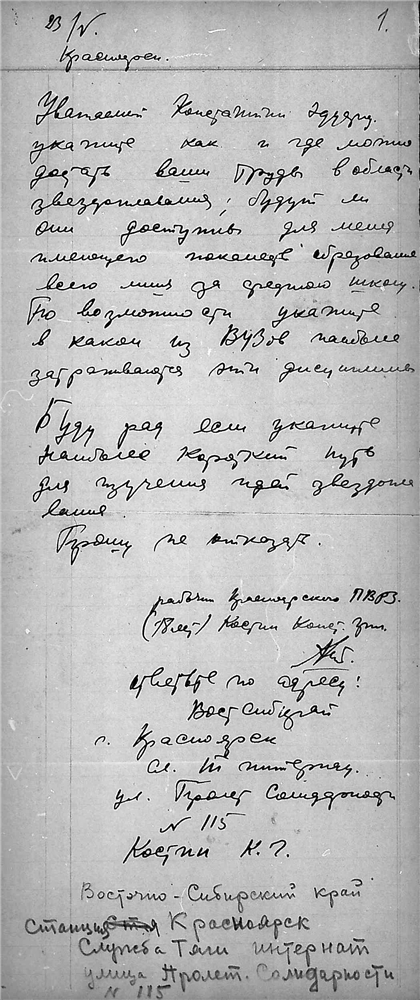 23/V.
1.
Красноярск.
Уважаемый Константин Эдуард.
укажите как и где можно
достать ваши Труды в области
звездоплавания; будут ли
они доступны для меня
имеющего покамест образование
всего лишь за среднюю школу.
По возможности укажите
в каком из ВУЗов наиболе
затрагиваются эти дисциплины
Буду рад если укажите
наиболее короткий путь
для изучения идей звездопла
вания.
Прошу не отказать.
рабочий Красноярского ПВРЗ.
(18 лет) Костин Конст.
ответьте по адресу:
ВостСибкрай
г. Красноярск
ул. Пролет Солидарности
N 115
Костин К. Г.
Восточно-Сибирский край
Станция Красноярск
Служба Тяги интернат
улица Пролет. Солидарности
N 115